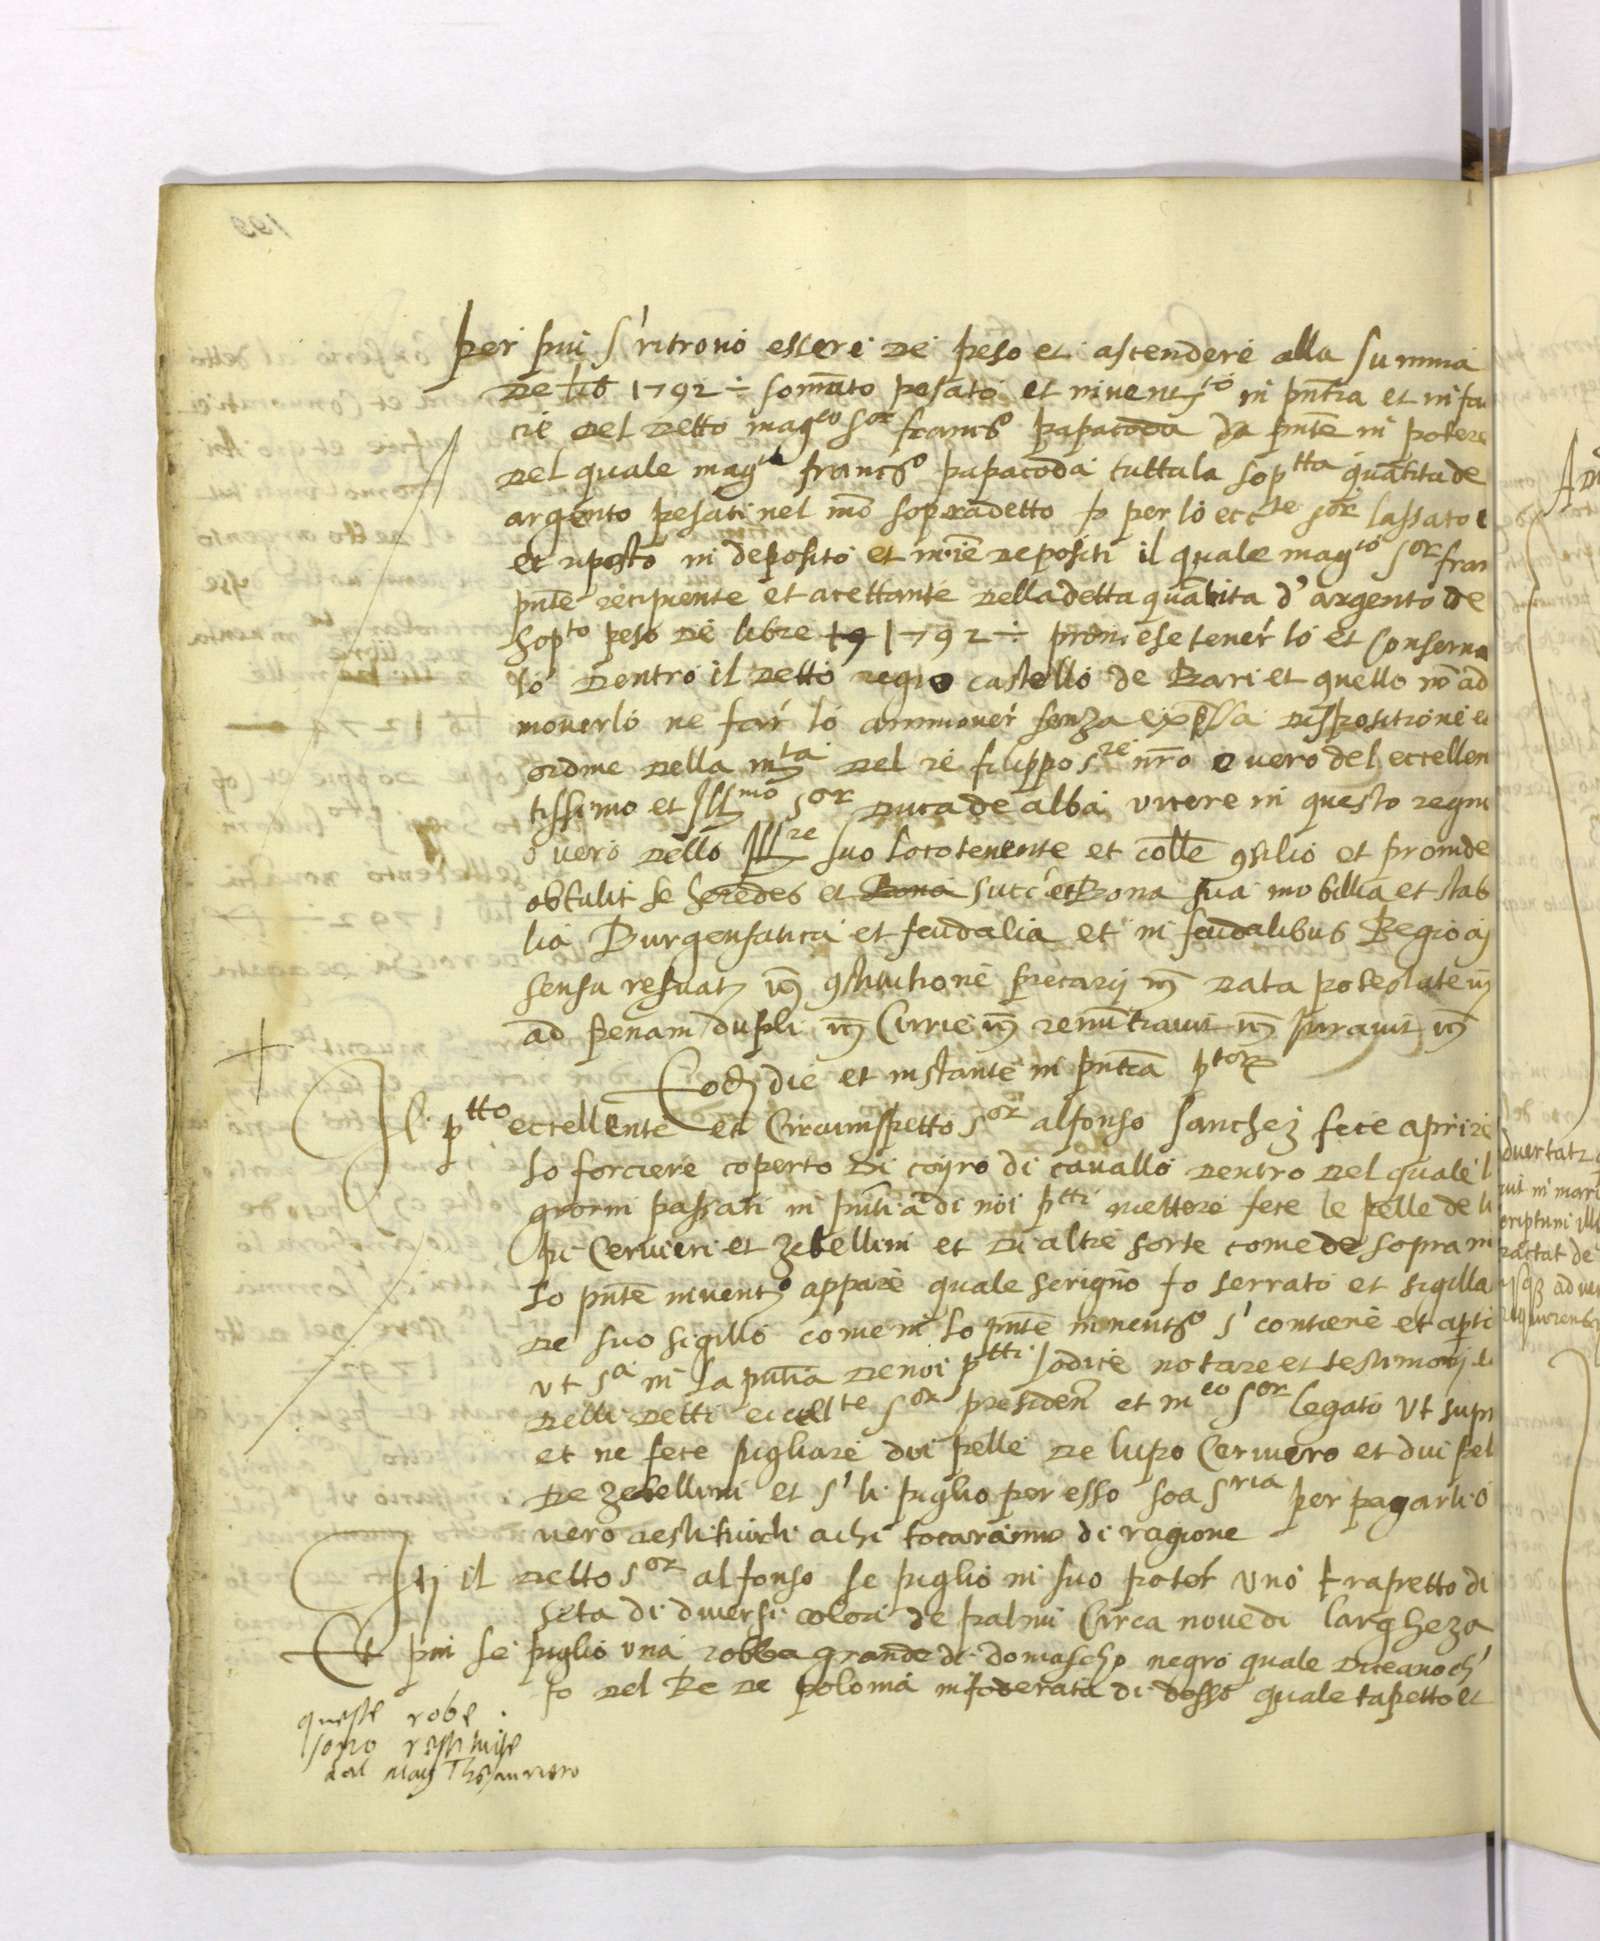 per piu s'ritrovó essere de peso et ascendere alla summa
de lib 1792 ÷ somato pesato et invent.to in pntia et in fa
cie del detto mag.co s.or franc.o papacoda da pnte in potere
del quale mag.co franc.o papacoda tutta la sop.tta quantita de
argento pesati nel mo sopradetto fo per lo ecc.te s.or lassato e
et riposto in deposito et noie depositi il quale mag.co s.or fran
pnte recipiente et acettante della detta quantita d'argento de
sop.to peso de libre 1792 ÷ promese tener lo et conserva
lo dentro il detto regio castello de Bari et quello no ad
moverlo ne far lo ammover senza expssa dispositione et
ordine della m.ta del re filippo s.re nro o vero del eccellen
tissimo et Ill.mo s.or duca de alba vicere in questo regno
o vero dello Ill.re suo locotenente et colle 9silio et proinde
obtulit se heredes et Bona succ et Bona sua mobillia et stab
lia Burgensatica et feudalia et in feudalibus Regio as
sensu reservat 9stitutione precarij data potestate
ad penam dupli Currie renuntiavit Iuravit
Eod die et instante in pntia p.tor
Il p.tto eccellente et Circumspetto s.or alfonso sanchez fece aprire
lo forciere coperto di coyro di cavallo dentro del quale l
giorni passati in pntia di noi p.tti mettere fece le pelle de lu
pi Cervieri et zebellini et di altre sorte come de sopra in
lo pnte invent.o appare quale scrigno fo serrato et sigilla
de suo sigillo come in lo pnte invent.o s' contiene et apti
ut s.a in la pntia de noi p.tti Iodice notare et testimonij et
delli detti eccell.te s.or presiden et m.co s.or legato ut supr
et ne fece pigliare dui pelle de lupo Cerviero et dui pel
de zebellini et s' li piglio per esso soa s.ria per pagarli o
vero restituirli a chi tocaranno di ragione
It il detto s.or alfonso se piglió in suo poter uno trapetto di
seta di diversi colori de palmi Circa nove di largheza
Et piu se piglió una robba grande di domascho negro quale diceano ch'
fo del Re de polonia infoderata di dosso quale tapetto et
queste robe
sono restituite
dal mag Thesauriero